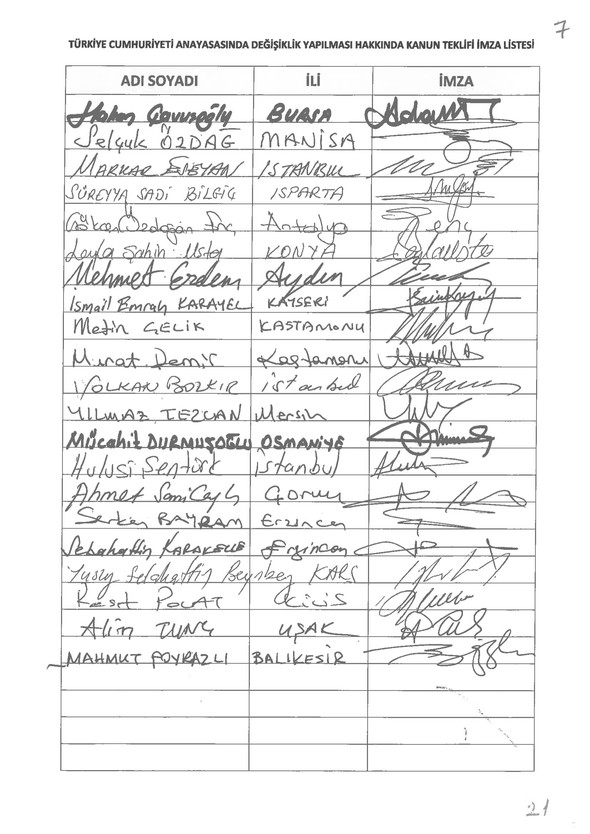 7
TÜRKİYE CUMHURİYETİ ANAYASASINDA DEĞİŞİKLİK YAPILMASI HAKKINDA KANUN TEKLİFİ İMZA LİSTESİ
ADI SOYADI İLİ İMZA
Hakan Çavuşoğlu BURSA
Selçuk ÖZDAĞ MANİSA
MARKAR ESEYAN İSTANBUL
SÜREYYA SADİ BİLGİÇ ISPARTA
Gökcen Özdoğan Enç Antalya
Leyla Şahin Usta KONYA
Mehmet Erdem Aydın
İsmail Emrah KARAYEL KAYSERİ
Metin ÇELİK KASTAMONU
Murat Demir Kastamonu
VOLKAN BOZKIR istanbul
YILMAZ TEZCAN Mersin
Mücahit DURMUŞOĞLU OSMANİYE
Hulusi Şentürk İstanbul
Ahmet Sami Ceylan Çorum
Serkan BAYRAM Erzincan
Sebahattin KARAKELLE Erzincan
Yusuf Selahattin Beyribey KARS
Reşit POLAT KİLİS
Alim TUNÇ UŞAK
MAHMUT POYRAZLI BALIKESİR
21